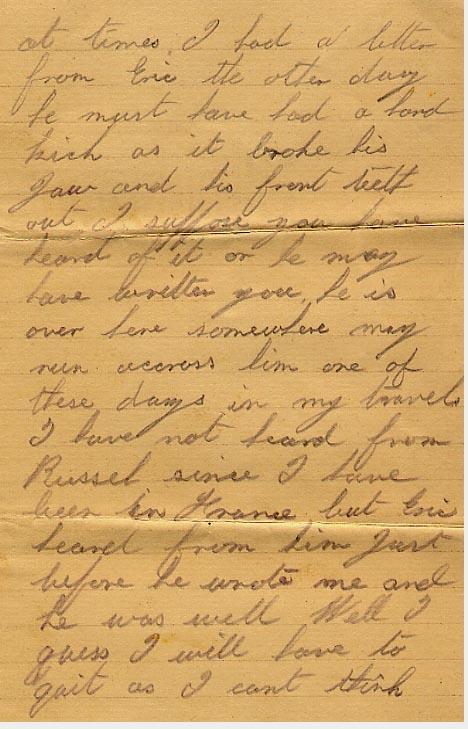 at times. I had a letter
from Eric the other day
he must have had a hard
kick as it broke his
Jaw and his front teeth
out I suppose you have
heard of it or he may
have written you, he is
over here somewhere may
run accross him one of
these days in my travels
I have not heard from
Russel since I have
been in France but Eric
heard from him Just
before he wrote me and
he was well Well I
guess I will have to
quit as I cant think